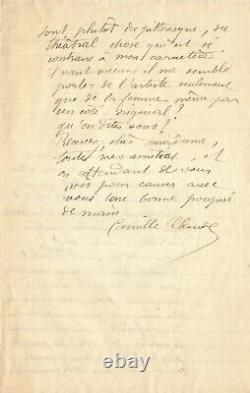 sont plutôt du pittoresque, du
théâtral chose qui est si
contraire à mon caractère
il vaut mieux il me semble
parler de l'artiste seulement
que de la femme même par
un côté original?
qu'en dites vous?
Recevez, chère
toutes mes amitiés, et
en attendant de vous
voir pour causer avec
vous une bonne poignée
de main
Camille Claudel